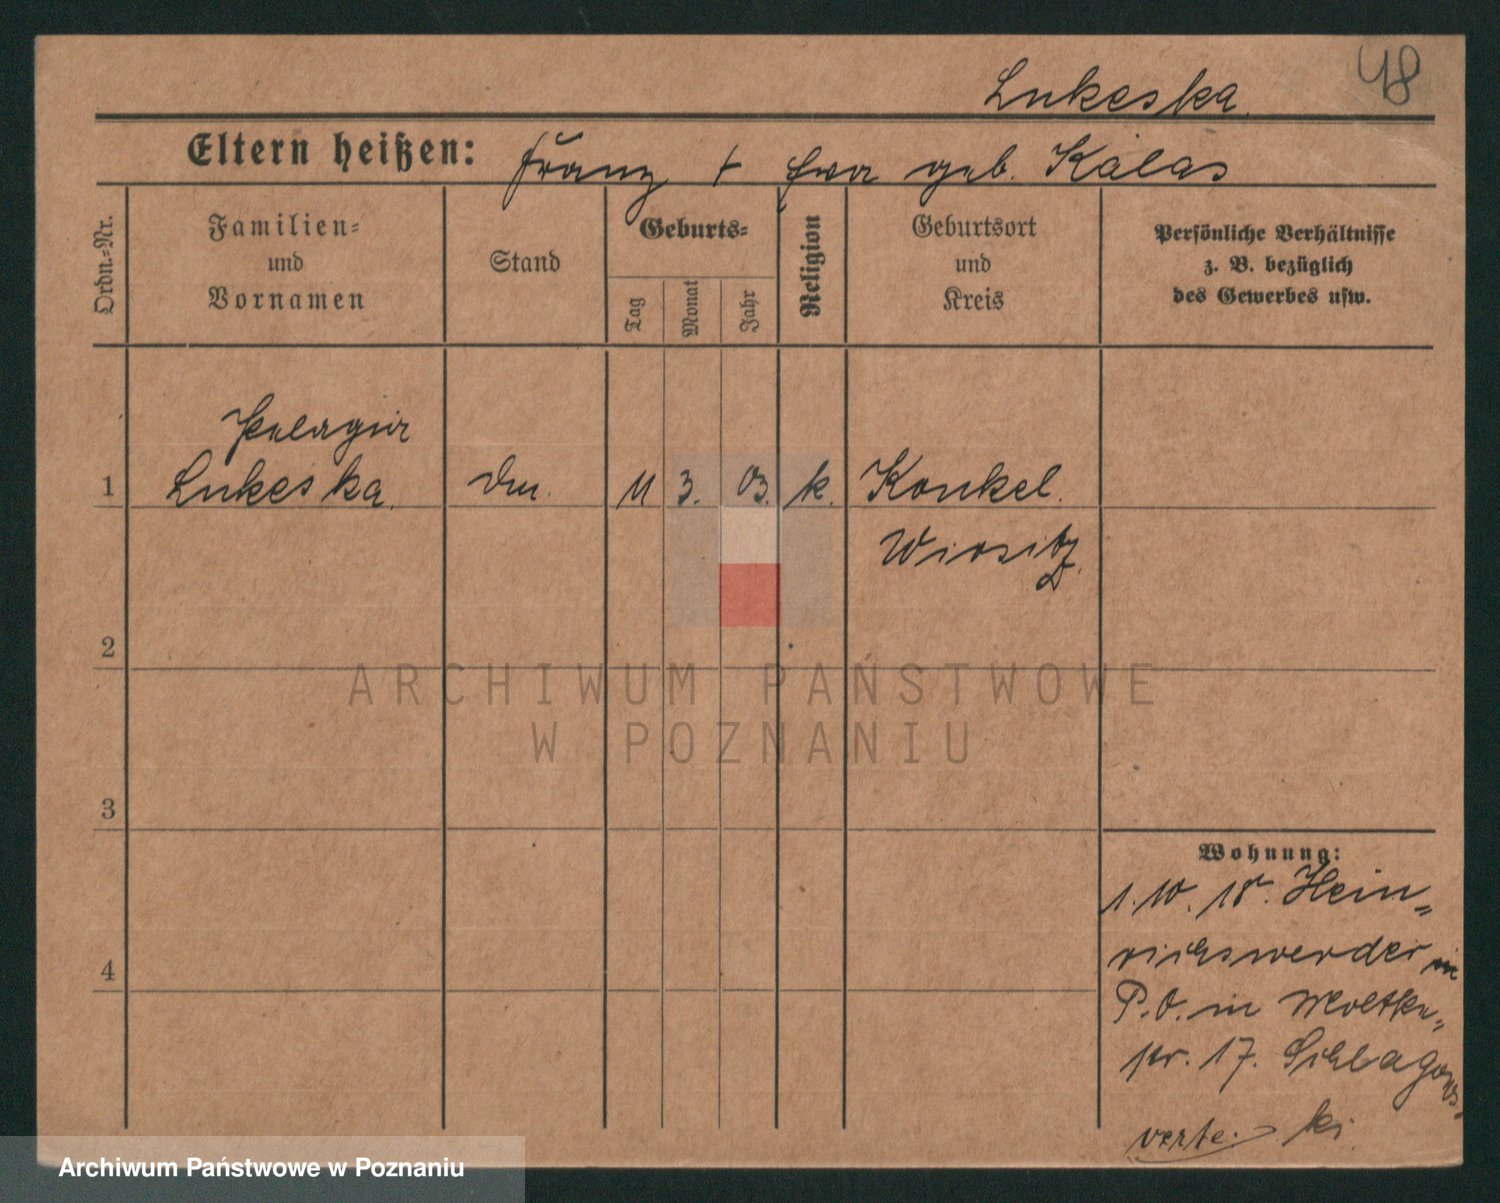 48
Lukeska
Eltern heißen: Franz + Eva geb. Kálas
Ordn.-Nr.
Familien-
und
Vornamen
Stand
Geburts-
Tag
Monat
Jahr
Religion
Geburtsort
und
Kreis
Persönliche Verhältnisse
z. B. bezüglich
des Gewerbes usw.
Pelagia
1 Lukeska. 11 3. 03. k. Konkel.
Wirsitz
2
3
4
ARCHIWUM PAŃSTWOWE
W POZNANIU
Wohnung:
1. 10. 18. Hein-
richswerder in
P.O. in Moltke-
str. 17. Schlagows-
verte. ki.
Archiwum Państwowe w Poznaniu